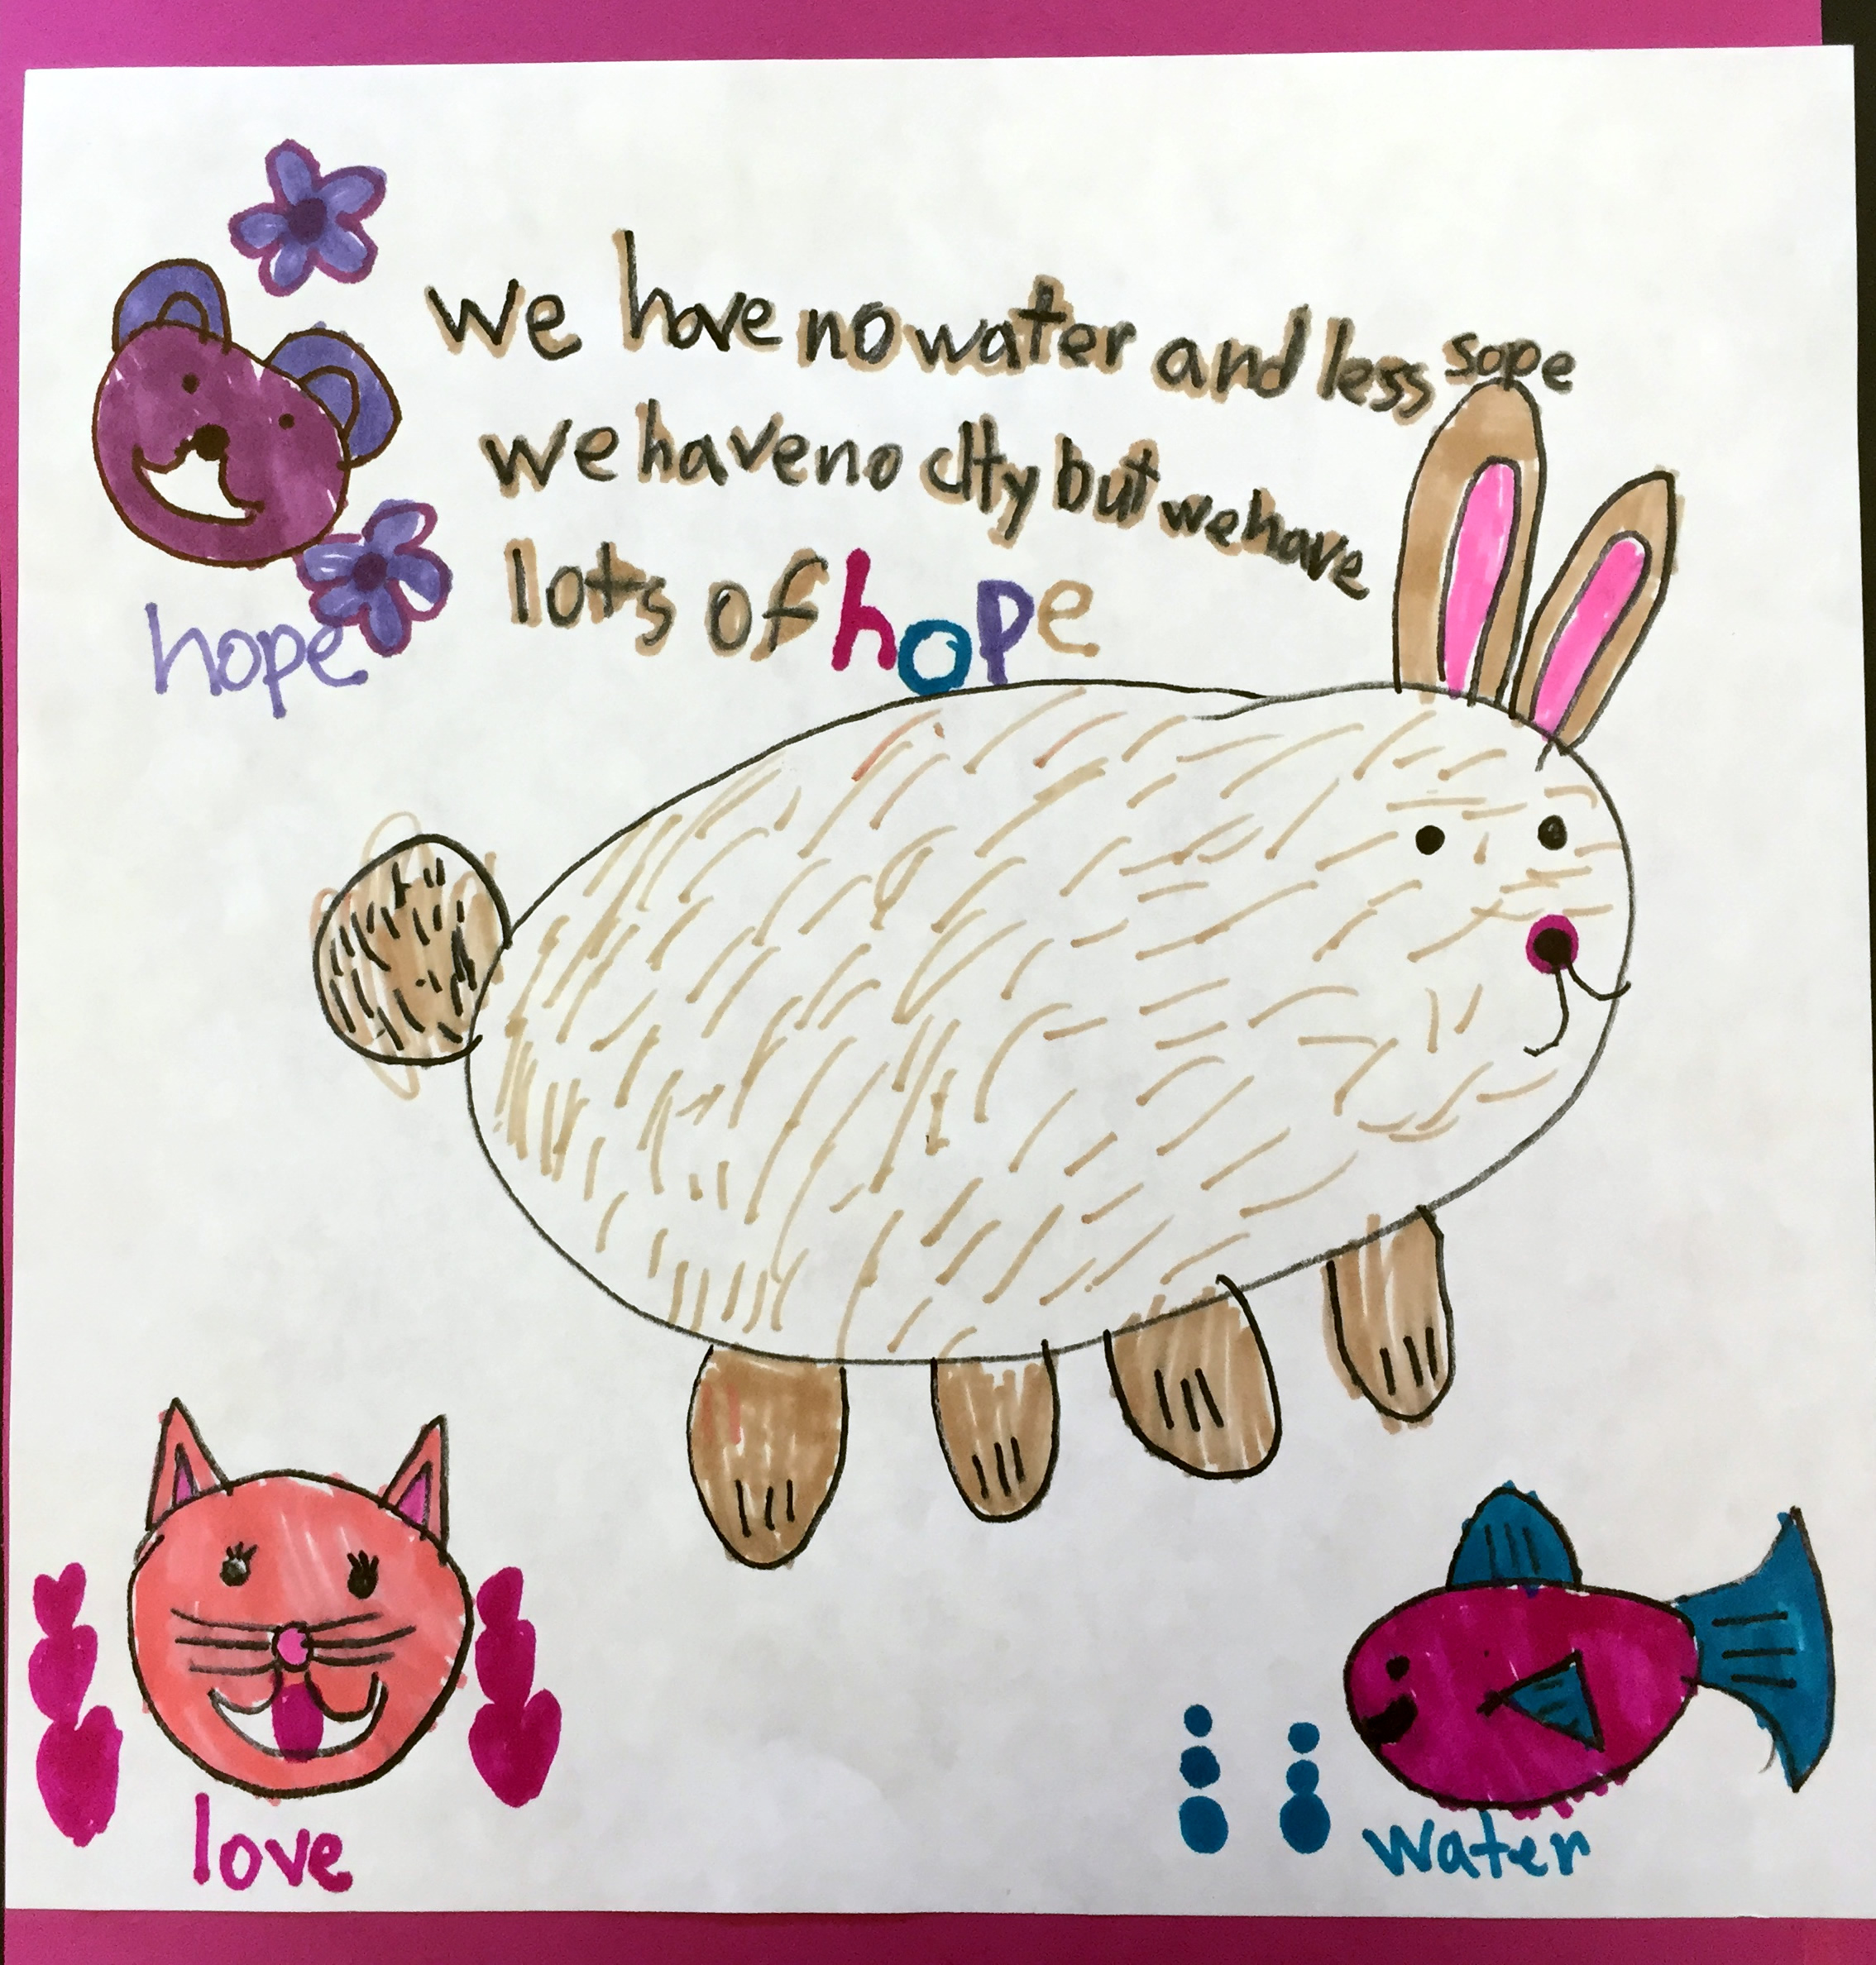 we have no water and less sope
we have no city but we have
lots of hope
hope
love
water